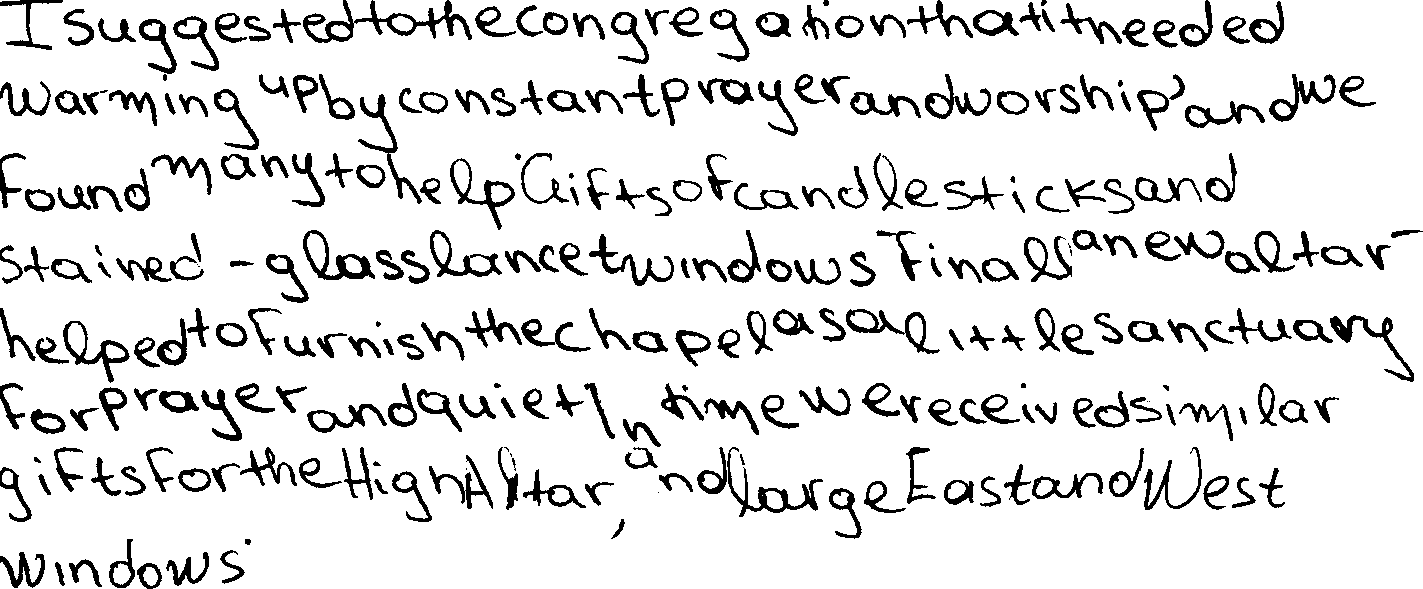 I suggested to the congregation that it needed
warming up by constant prayer and worship, and we
found many to help. Gifts of candlesticks and
stained - glass lancet windows Finals a new altar
helped to furnish the chapel as a little sanctuary
for prayer and quiet In time we received similar
gifts for the High Altar, and large East and West
windows.